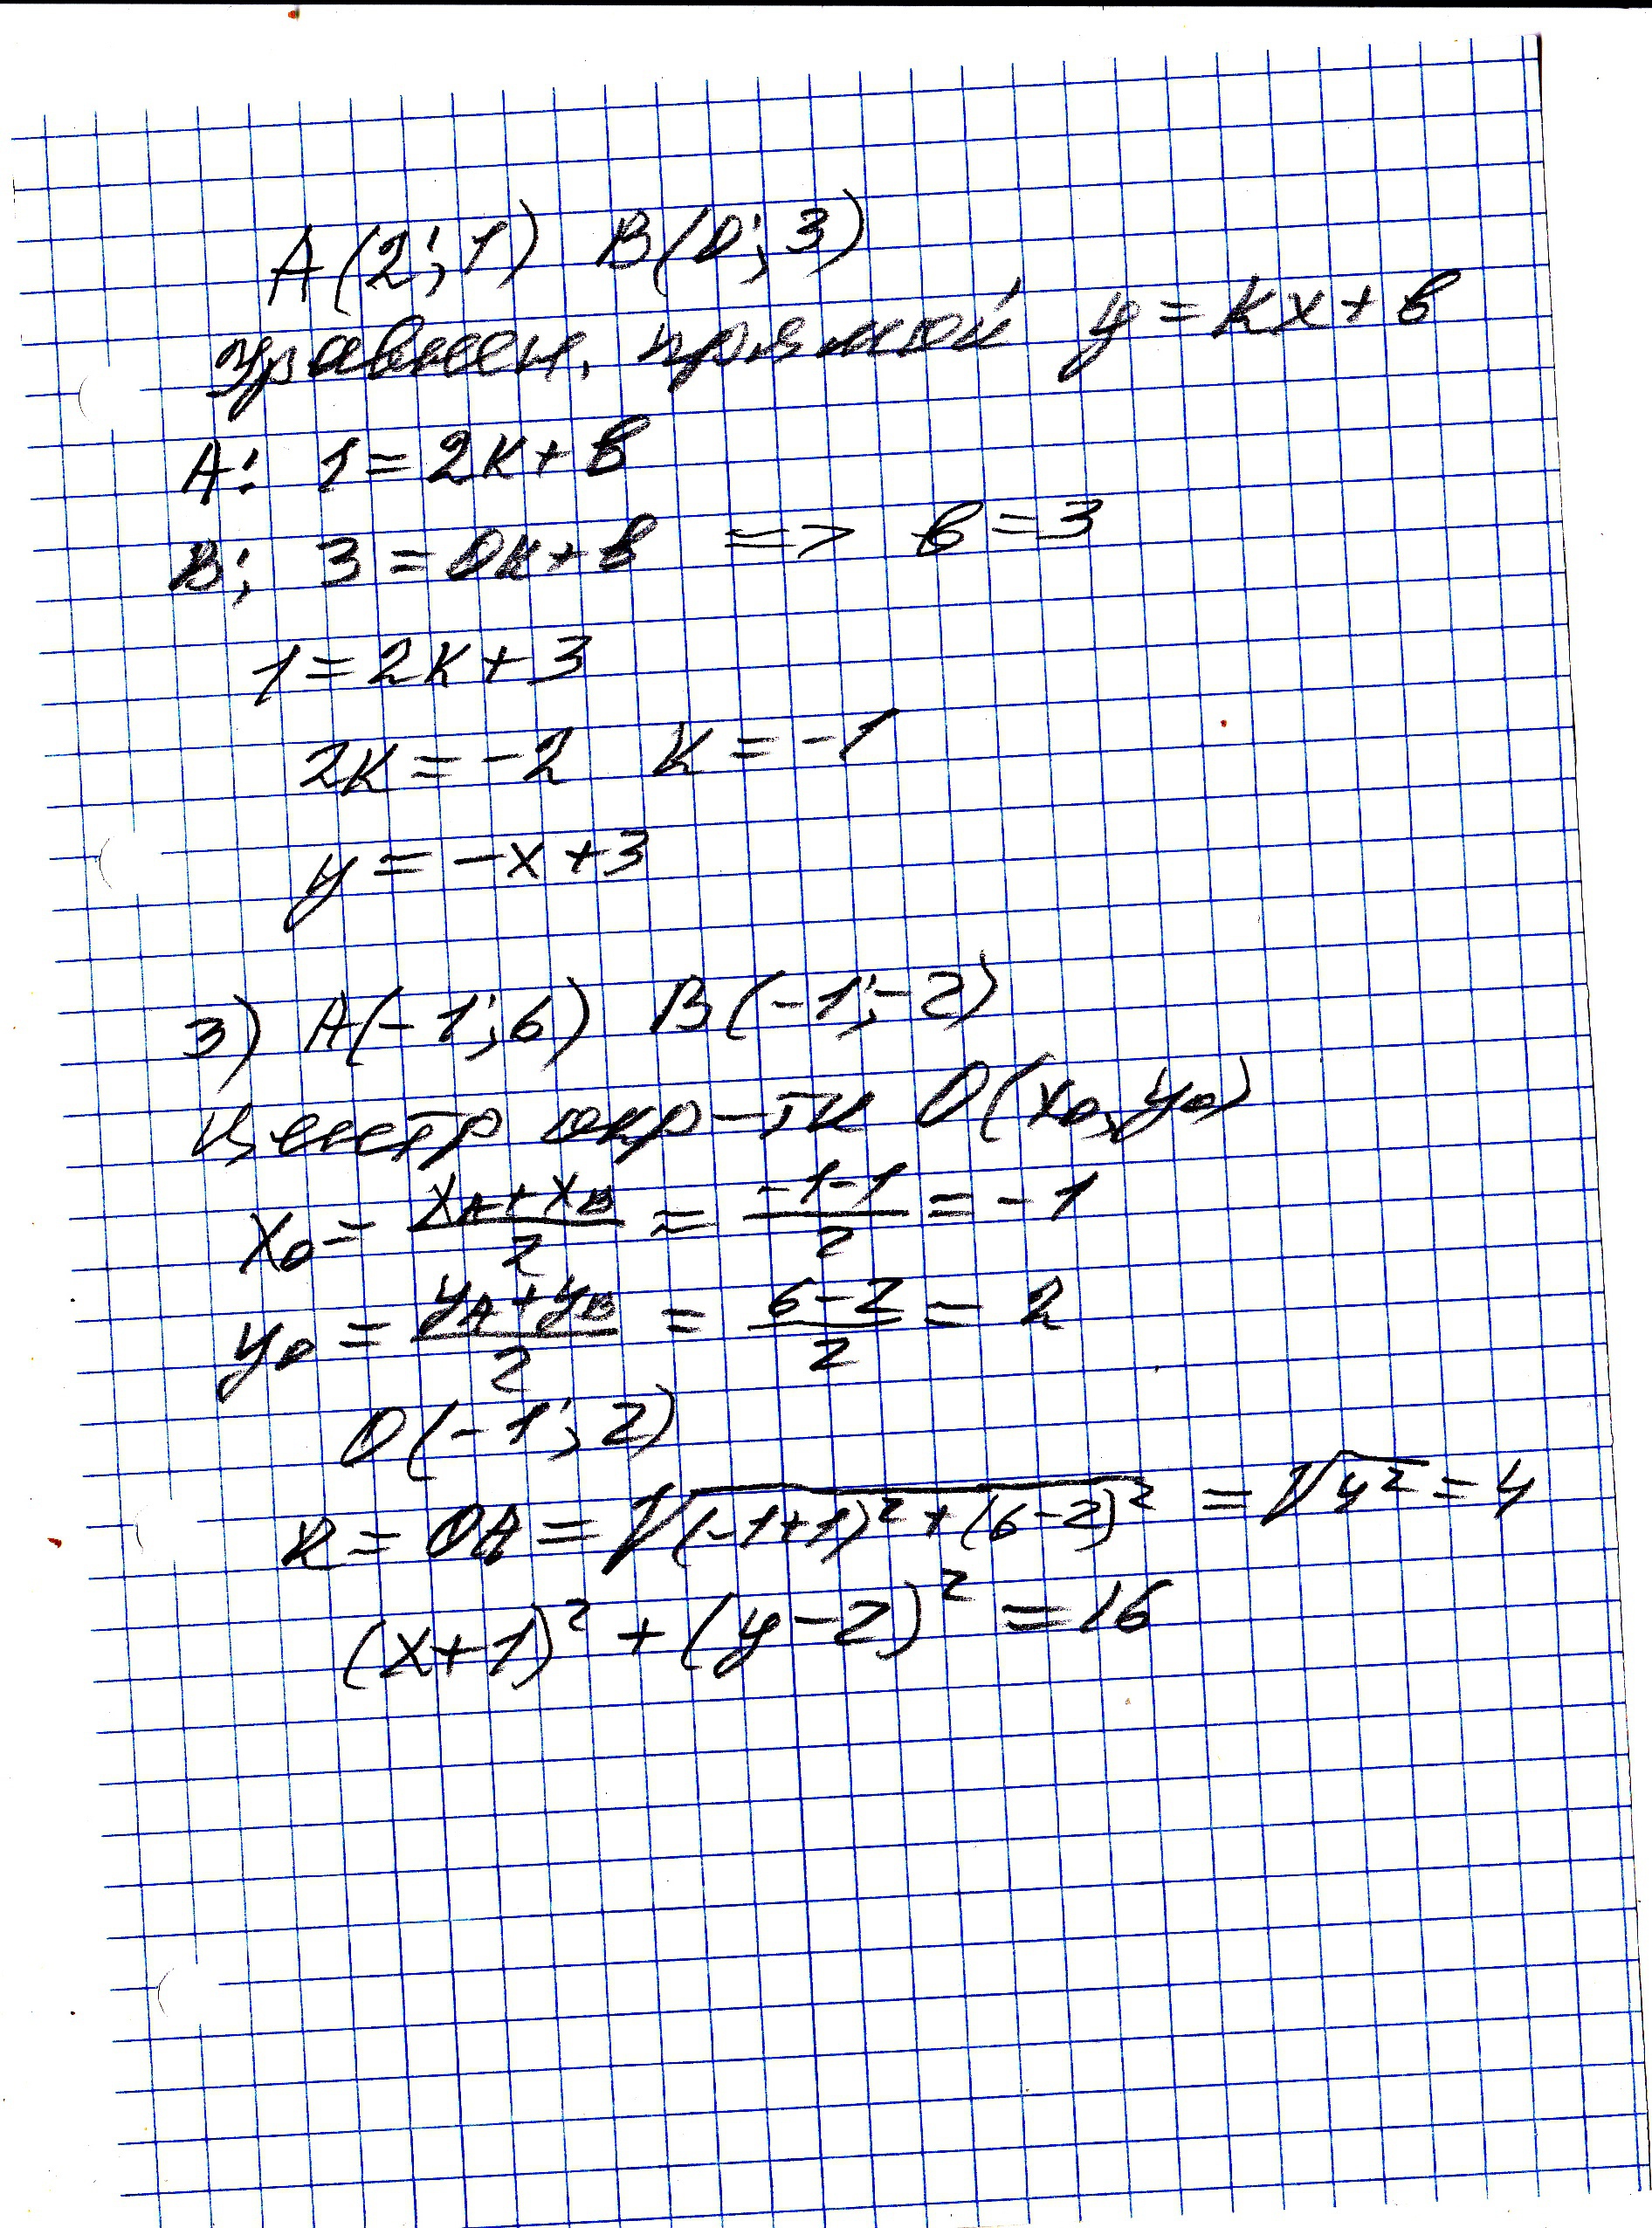 A(2; 1) B(0; 3)
уравнен. прямой y = kx + b
A: 1 = 2k + b
B: 3 = 0k + b => b = 3
1 = 2k + 3
2k = -2 k = -1
y = -x + 3
3) A(-1; 6) B(-1; -2)
центр окр-ти O(x₀, y₀)
x₀ = (x_A + x_B)/2 = (-1-1)/2 = -1
y₀ = (y_A + y_B)/2 = (6-2)/2 = 2
O(-1; 2)
R = OA = √((-1+1)² + (6-2)²) = √4² = 4
(x+1)² + (y-2)² = 16